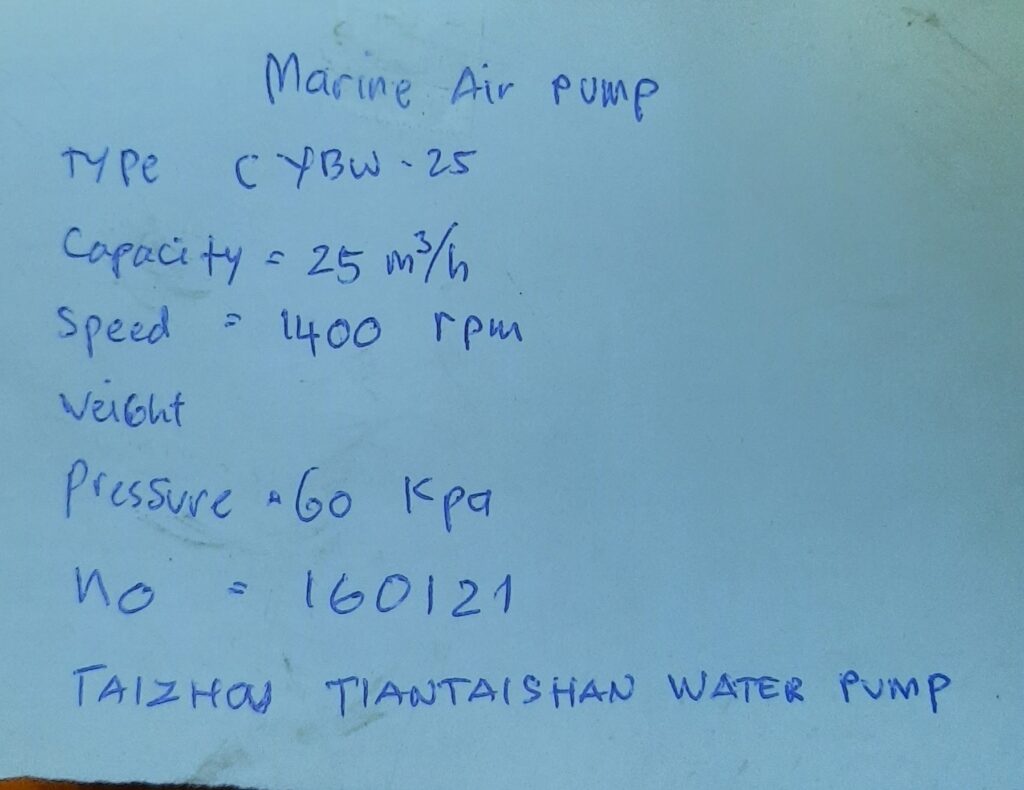 Marine Air pump
TYPe CYBW-25
Capacity = 25 m³/h
Speed = 1400 rpm
Weight
Pressure = 60 Kpa
No = 160121
TAIZHOU TIANTAISHAN WATER PUMP